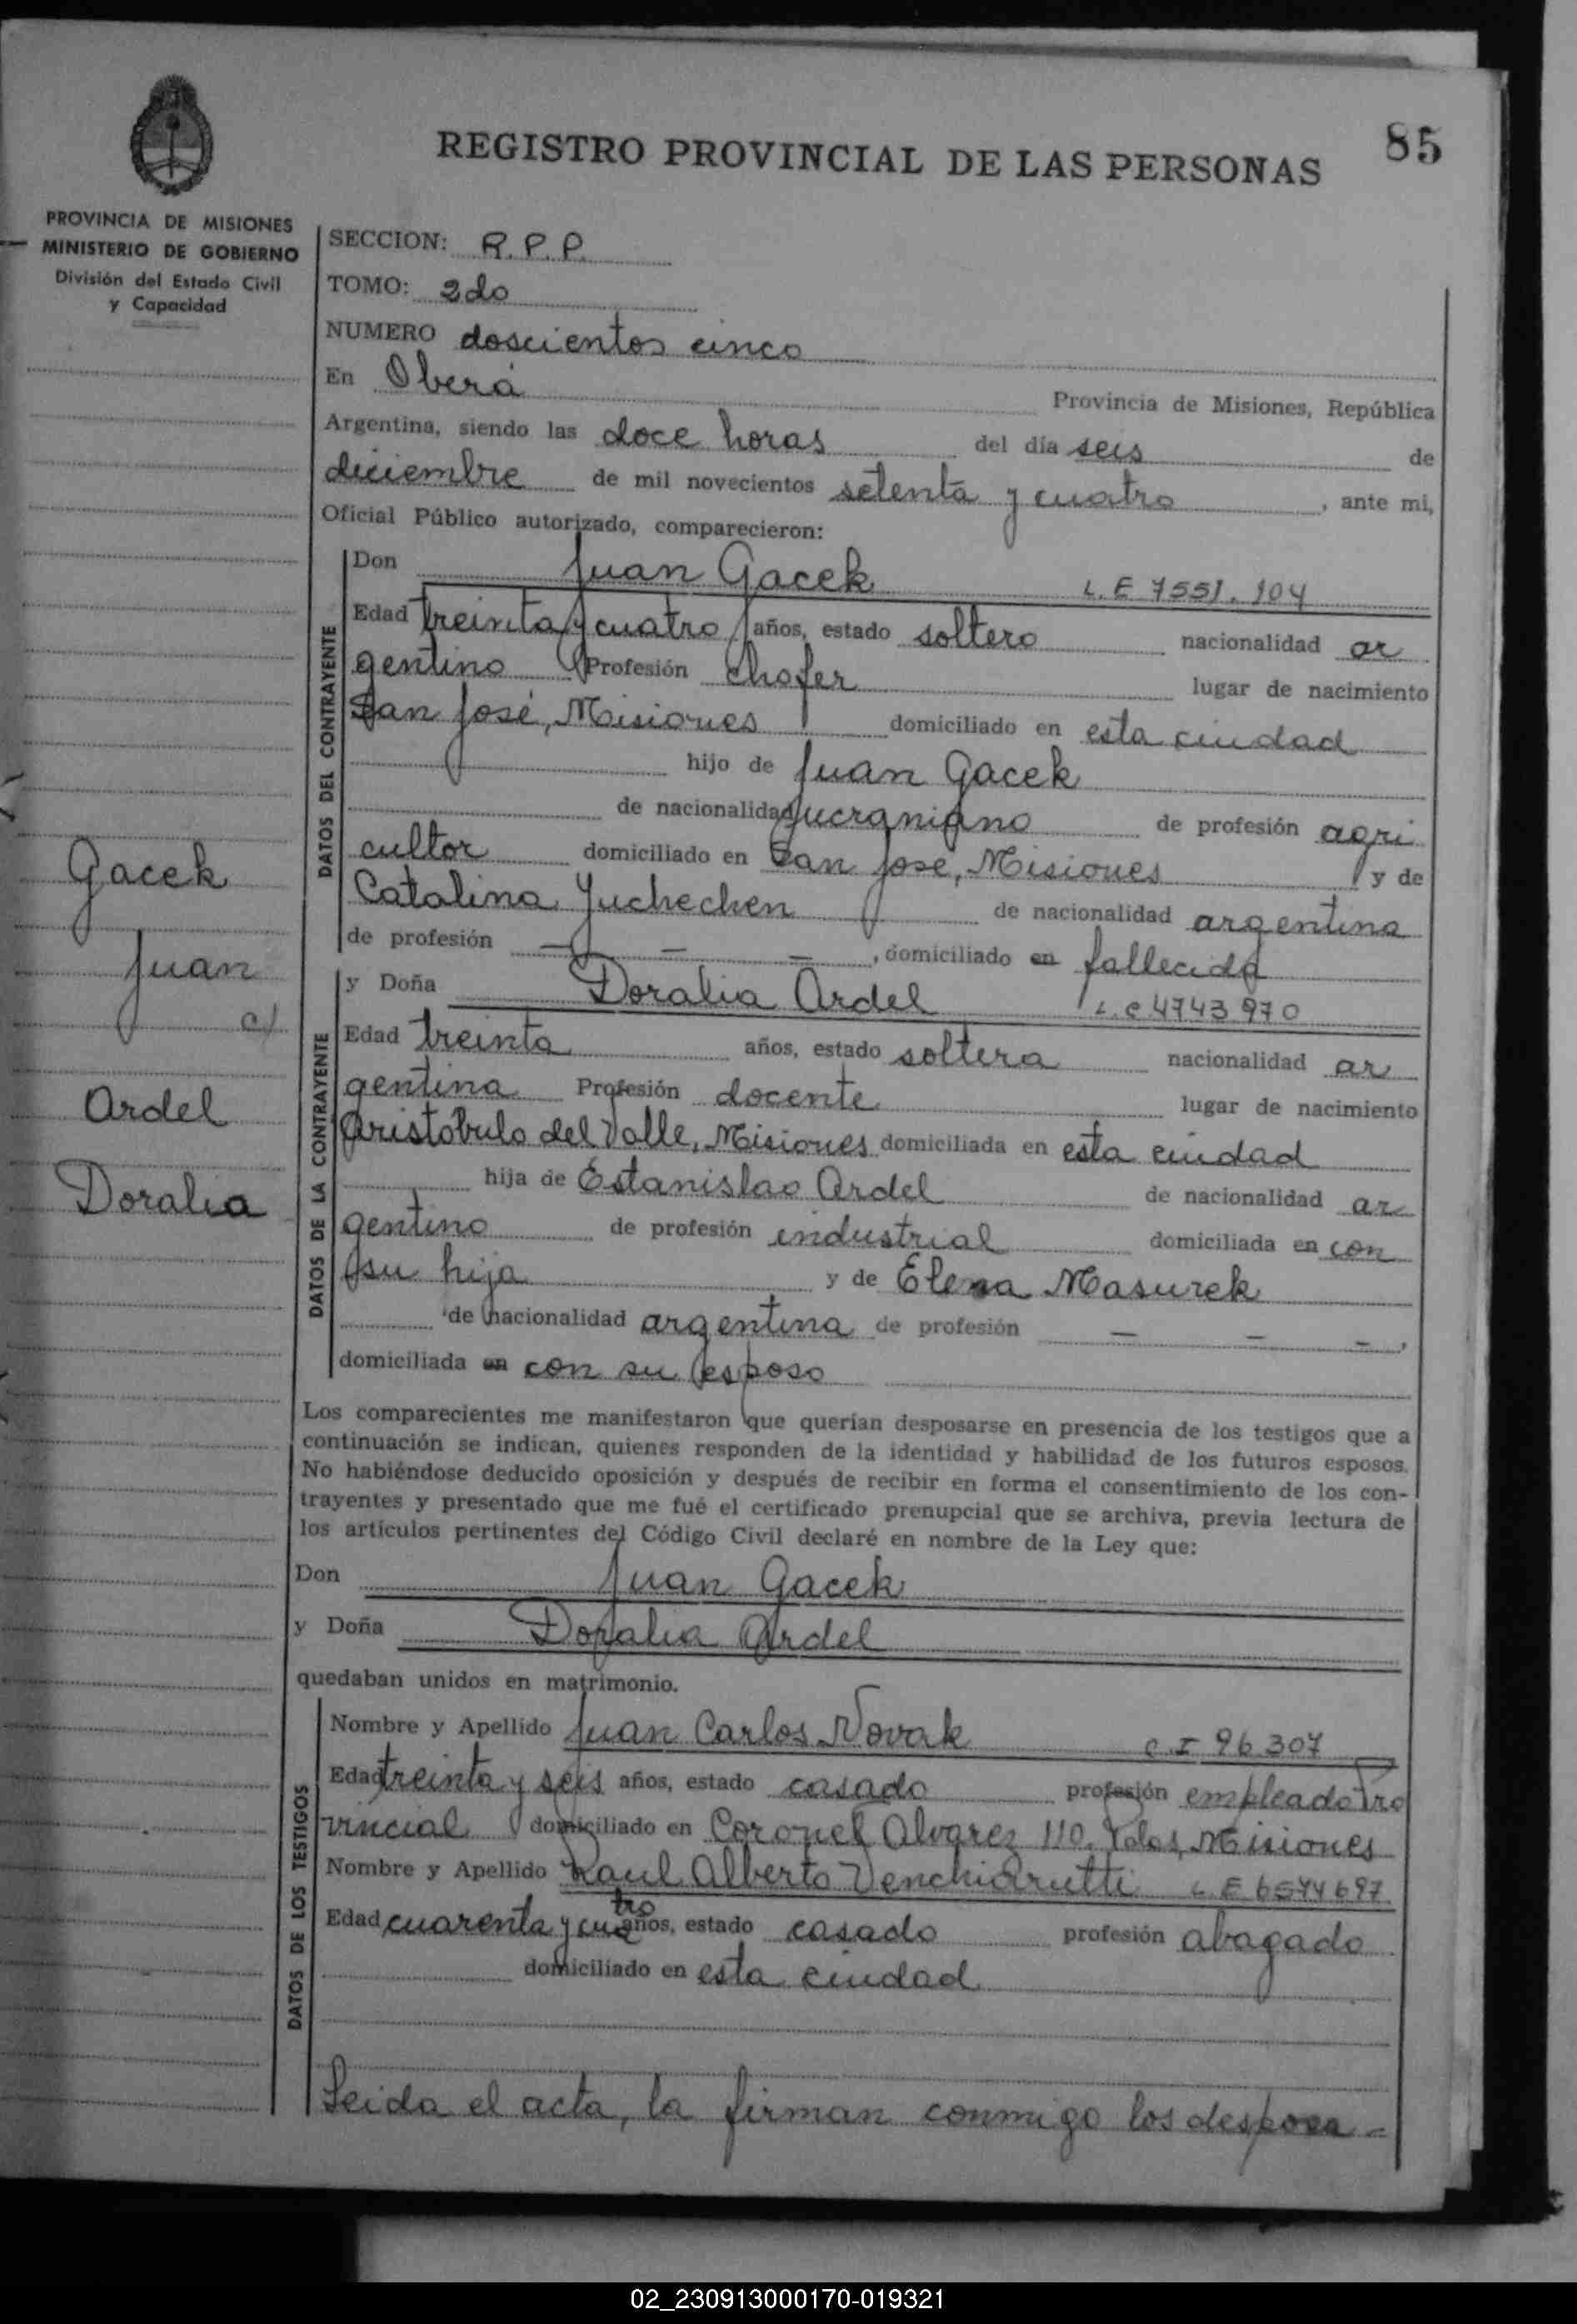 85
REGISTRO PROVINCIAL DE LAS PERSONAS
PROVINCIA DE MISIONES
MINISTERIO DE GOBIERNO
División del Estado Civil
y Capacidad
SECCION: R.P.P.
TOMO: 2do
NUMERO doscientos cinco
En Oberá Provincia de Misiones, República
Argentina, siendo las doce horas del día seis de
diciembre de mil novecientos setenta y cuatro, ante mi,
Oficial Público autorizado, comparecieron:
DATOS DEL CONTRAYENTE
Don Juan Gacek L.E 7551.104
Edad treinta y cuatro años, estado soltero nacionalidad ar
gentino Profesión chofer lugar de nacimiento
San José, Misiones domiciliado en esta ciudad
hijo de Juan Gacek
de nacionalidad ucraniano de profesión agri
cultor domiciliado en San José, Misiones y de
Catalina Juchechen de nacionalidad argentina
de profesión — — —, domiciliado en fallecida
Gacek
Juan
c/
Ardel
Doralia
DATOS DE LA CONTRAYENTE
y Doña Doralia Ardel L.C 4743970
Edad treinta años, estado soltera nacionalidad ar
gentina Profesión docente lugar de nacimiento
Aristobulo del Valle, Misiones domiciliada en esta ciudad
hija de Estanislao Ardel de nacionalidad ar
gentino de profesión industrial domiciliada en con
su hija y de Elena Masurek
de nacionalidad argentina de profesión — — —,
domiciliada en con su esposo
Los comparecientes me manifestaron que querían desposarse en presencia de los testigos que a
continuación se indican, quienes responden de la identidad y habilidad de los futuros esposos.
No habiéndose deducido oposición y después de recibir en forma el consentimiento de los con-
trayentes y presentado que me fué el certificado prenupcial que se archiva, previa lectura de
los artículos pertinentes del Código Civil declaré en nombre de la Ley que:
Don Juan Gacek
y Doña Doralia Ardel
quedaban unidos en matrimonio.
DATOS DE LOS TESTIGOS
Nombre y Apellido Juan Carlos Novak C.I 96307
Edad treinta y seis años, estado casado profesión empleado Pro
vincial domiciliado en Coronel Alvarez 110, Misiones
Nombre y Apellido Raul Alberto Venchiarutti L.E 6544697
Edad cuarenta y cuatro años, estado casado profesión abogado
domiciliado en esta ciudad
Leida el acta, la firman conmigo los desposa-
02_230913000170-019321